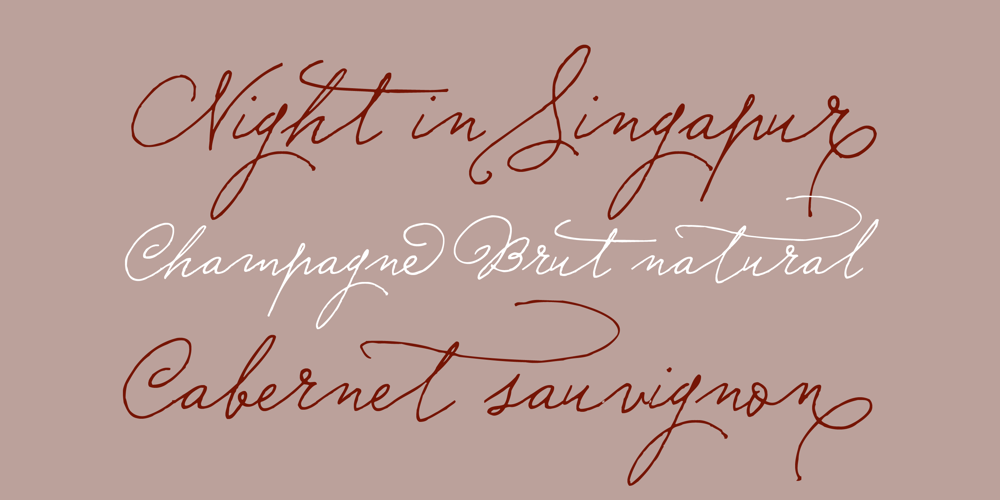 Night in Singapur
Champagne Brut natural
Cabernet sauvignon